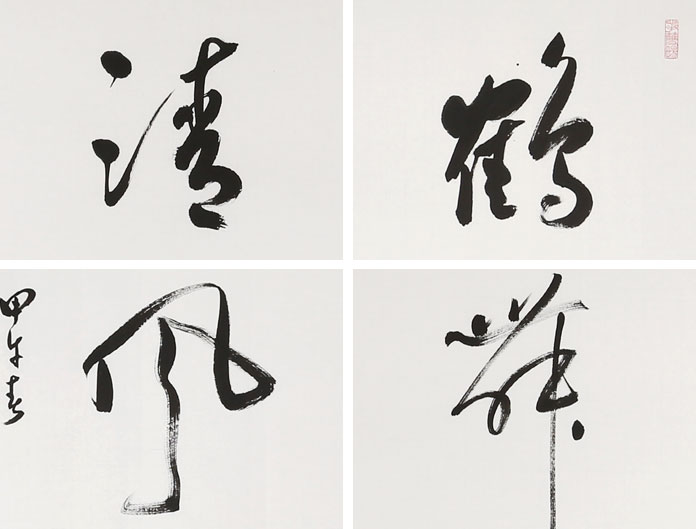 鶴舞
清風
甲午春